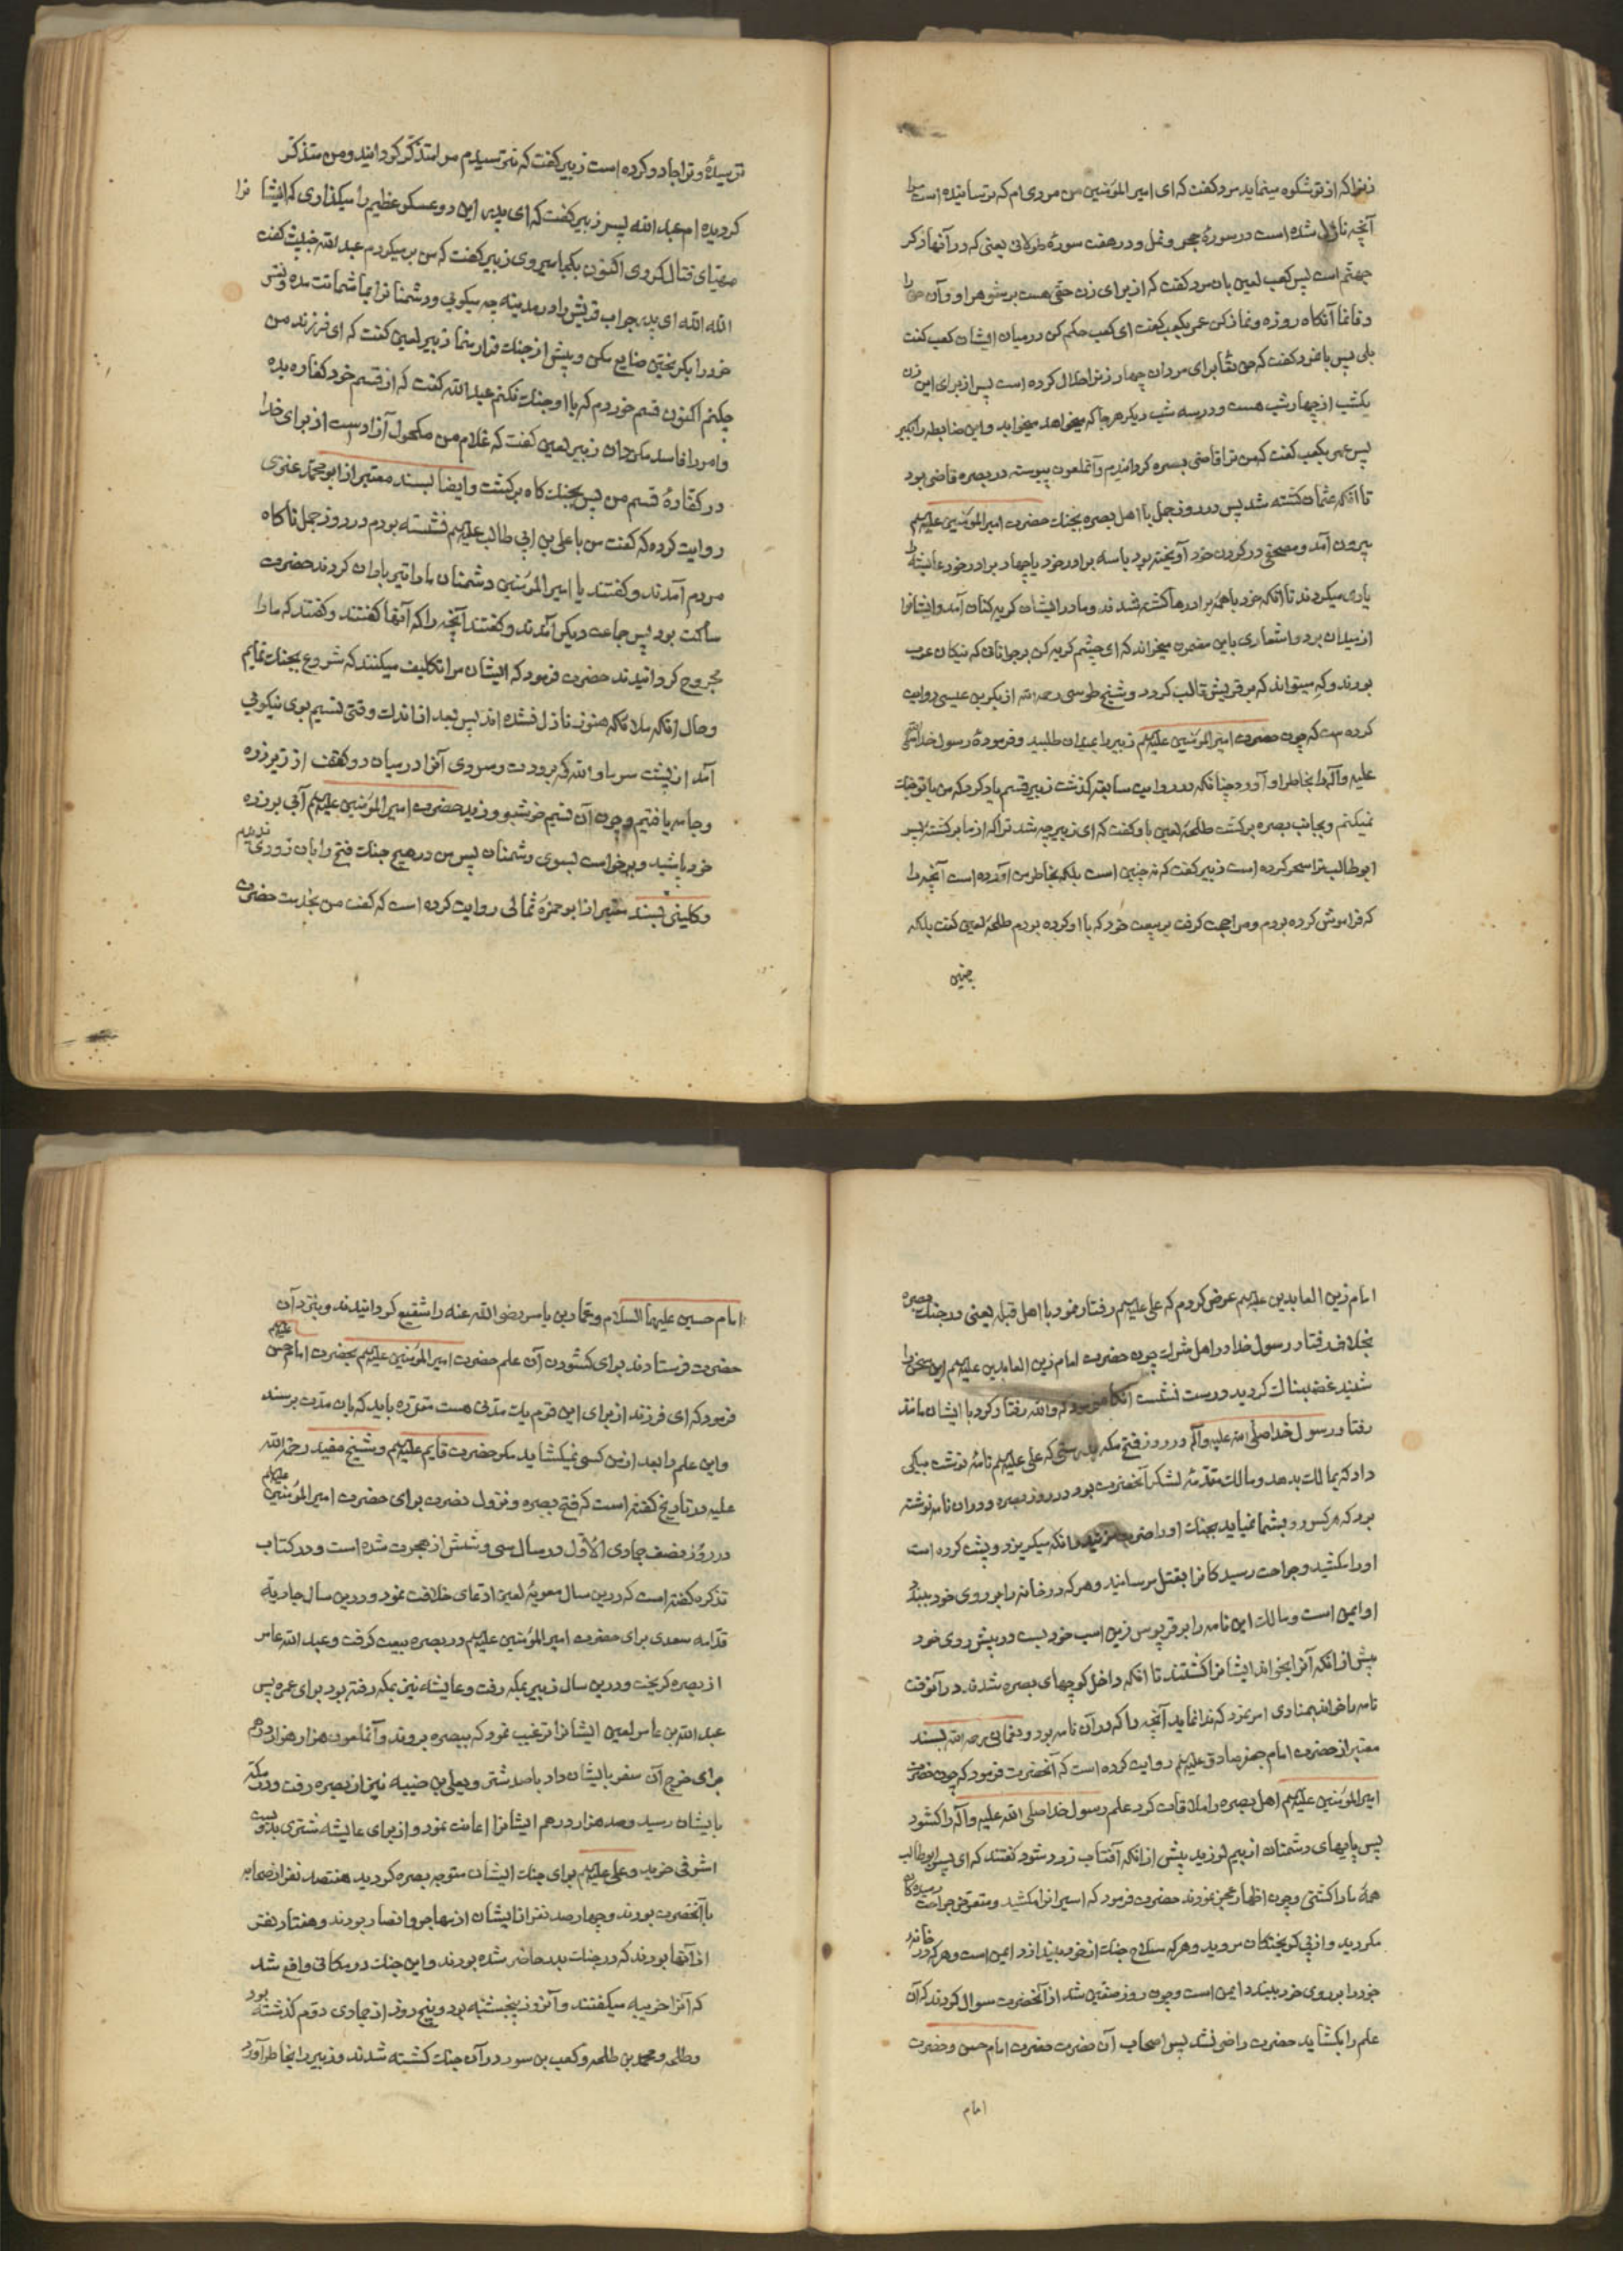 زنها که از تو شکوه مینماید مرد گفت که ای امیر المؤمنین من مردی ام که ترسانیده است مرا
آنچه نازل شده است در سورهٔ حجر و نمل و در هفت سورهٔ طولانی یعنی که در آنها ذکر
جهنّم است پس کعب لعین بان مرد گفت که از برای زن حقّی هست بر شوهر او و آن حق را
وفا نما آنگاه روزه و نماز کن عمر بکعب گفت ای کعب حکم کن در میان ایشان کعب گفت
بلی پس بامرد گفت که حق تعا برای مردان چهار زنرا حلال کرده است پس از برای این زن
یکشب از چهار شب هست و در سه شب دیگر هرجا که میخواهد میخوابد و این ضابطه را بگیر
پس عمر بکعب گفت که من ترا قاضی بصره کردانیدم و آنملعون پیوسته در بصره قاضی بود
تا آنکه عثمان کشته شد پس در روز جمل با اهل بصره بجنک حضرت امیر المؤمنین علیه السلم
بیرون آمد و مصحفی در گردن خود آویخته بود با سه برادر خود یا چهار برادر خود عایشه را
یاری میکردند تا آنکه خود با همه برادرها کشته شدند و مادر ایشان گریه کنان آمد و ایشانرا
از میدان برد و اشعاری باین مضمون میخواند که ای چشم گریه کن بر جوانانی که نیکان عرب
بودند و که میتواند که بر قریش غالب گردد و شیخ طوسی رحمه الله از بکر بن عیسی روایت
کرده است که چون حضرت امیر المؤمنین علیه السلم زبیر را بمیدان طلبید و فرمودهٔ رسول خدا صلی الله
علیه وآله را بخاطر او آورد چنانکه در روایت سابقه گذشت زبیر قسم یاد کرد که من با تو جنک
نمیکنم و بجانب بصره برگشت طلحهٔ لعین باو گفت که ای زبیر چه شد ترا که از ما برگشته پسر
ابوطالب ترا سحر کرده است زبیر گفت که نه چنین است بلکه بخاطر من آورده است آنچه را
که فراموش کرده بودم و مراجعت گرفت بر بیعت خود که با او کرده بودم طلحهٔ لعین گفت بلکه
چنین
ترسیدهٔ و ترا جادو کرده است زبیر گفت که نترسیدم مرا متذکّر گردانید و من متذکّر
گردیده ام عبد الله پسر زبیر گفت که ای پدر این دو عسکر عظیم را میگذاری که ایشان را
مهیّای قتال کردی اکنون بکجا میروی زبیر گفت که من بر میگردم عبد الله خبیث گفت
الله الله ای پدر جواب قریش را در مدینه چه میگویی و دشمنانرا بما شماتت مده و نفس
خود را بگریختن ضایع مکن و پیش از جنک فرار منما زبیر لعین گفت که ای فرزند من
چکنم اکنون قسم خوردم که با او جنک نکنم عبد الله گفت که از قسم خود کفاره بده
و امر را فاسد مگردان زبیر لعین گفت که غلام من مکحول آزاد است از برای خدا
در کفّارهٔ قسم من پس بجنک گاه برگشت و ایضا بسند معتبر از ابو محمّد عنزی
روایت کرده که گفت من با علی بن ابی طالب علیه السلم نشسته بودم در روز جمل ناگاه
مردم آمدند و گفتند یا امیر المؤمنین دشمنان ما را تیر باران کردند حضرت
ساکت بود پس جماعت دیگر آمدند و گفتند آنچه را که آنها گفتند و گفتند که ما را
مجروح گردانیدند حضرت فرمود که ایشان مرا تکلیف میکنند که شروع بجنک نمایم
و حال آنکه ملائکه هنوز نازل نشده اند پس بعد از اندک وقتی نسیم بوی نیکویی
آمد از پشت سر ما والله که برودت و سردی آنرا در میان دو کتف از زیر زره
و جامه یافتیم و چون آن نسیم خوشبو وزید حضرت امیر المؤمنین علیه السلم آبی بر زره
خود پاشید و برخواست بسوی دشمنان پس من در هیچ جنک فتح را بان زودی ندیدم
و کلینی بسند معتبر از ابو حمزهٔ ثمالی روایت کرده است که گفت من بخدمت حضرت
امام زین العابدین علیه السلم عرض کردم که علی علیه السلم رفتار نمود با اهل قبله یعنی در جنک بصره
بخلاف رفتار رسول خدا در اهل شرک چون حضرت امام زین العابدین علیه السلم این سخن را
شنید غضبناک گردید و درست نشست آنگاه فرمود که والله رفتار کرد با ایشان مانند
رفتار رسول خدا صلی الله علیه وآله در روز فتح مکه بدرستی که علی علیه السلم نامهٔ نوشت بیکی
داد که بمالک بدهد و مالک مقدّمهٔ لشکر آنحضرت بود در روز بصره و در ان نامه نوشته
بود که هر کس رو بشما نیاید بجنک او را ضربت مزنید و آنکه میگریزد و پشت کرده است
او را مکشید و جراحت رسیدکانرا بقتل مرسانید و هر که در خانه را بر روی خود ببندد
او ایمن است و مالک این نامه را بر قرپوس زین اسب خود بست در پیش روی خود
پیش از انکه آنرا بخواند ایشانرا کشتند تا آنکه داخل کوچهای بصره شدند در آنوقت
نامه را خواند بمنادی امر نمود که ندا نماید آنچه را که در آن نامه بود و نعمانی رحمه الله بسند
معتبر از حضرت امام جعفر صادق علیه السلم روایت کرده است که آنحضرت فرمود که چون حضرت
امیر المؤمنین علیه السلم اهل بصره را ملاقات کرد علم رسول خدا صلی الله علیه وآله را گشود
پس پایهای دشمنان از بیم لرزید پیش از انکه آفتاب زرد شود گفتند که ای پسر ابوطالب
همه ما را کشتی و چون اظهار عجز نمودند حضرت فرمود که اسیرانرا مکشید و متعرّض جراحت رسیده کان
مگردید و از پی گریختکان مروید و هر که سلاح جنک از خود بیندازد ایمن است و هر که در خانه
خود را بر روی خود ببندد ایمن است و چون روز صفّین شد از آنحضرت سوال کردند که آن
علم را بگشاید حضرت راضی نشد پس اصحاب آن حضرت حضرت امام حسن و حضرت
امام
امام حسین علیهما السلام و عمّار بن یاسر رضی الله عنه را شفیع گردانیدند و بنزد آن
حضرت فرستادند برای گشودن آن علم حضرت امیر المؤمنین علیه السلم بحضرت امام حسن علیه السلم
فرمود که ای فرزند از برای این قوم یک مدّتی هست مقرّره باید که بان مدّت برسند
و این علم را بعد از من کسی نمیگشاید مگر حضرت قایم علیه السلم و شیخ مفید رحمه الله
علیه در تاریخ گفته است که فتح بصره و نزول نصرت برای حضرت امیر المؤمنین علیه السلم
در روز نصف جمادی الاوّل در سال سی و شش از هجرت شده است و در کتاب
تذکره گفته است که در این سال معویهٔ لعین ادّعای خلافت نمود و در این سال جاریة
قدامه سعدی برای حضرت امیر المؤمنین علیه السلم در بصره بیعت گرفت و عبد الله عامر
از بصره گریخت و در این سال زبیر بمکه رفت و عایشه نیز بمکه رفته بود برای عمره پس
عبد الله بن عامر لعین ایشانرا ترغیب نمود که ببصره بروند و آنملعون هزار هزار درهم
برای خرج آن سفر بایشان داد با صد شتر و یعلی بن منیه نیز از بصره رفت و در مکه
بایشان رسید و صد هزار درهم ایشانرا اعانت نمود و از برای عایشه شتری بدویست
اشرفی خرید و علی علیه السلم برای جنک ایشان متوجه بصره گردید هفتصد نفر از صحابه
با آنحضرت بودند و چهار صد نفر از ایشان از مهاجر و انصار بودند و هفتاد نفر
از آنها بودند که در جنک بدر حاضر شده بودند و این جنک در مکانی واقع شد
که آنرا خریبه میگفتند و آنروز پنجشنبه بود و پنج روز از جمادی دوّم گذشته بود
و طلحه و محمد بن طلحه و کعب بن سور در آن جنک کشته شدند و زبیر را بخاطر آورد